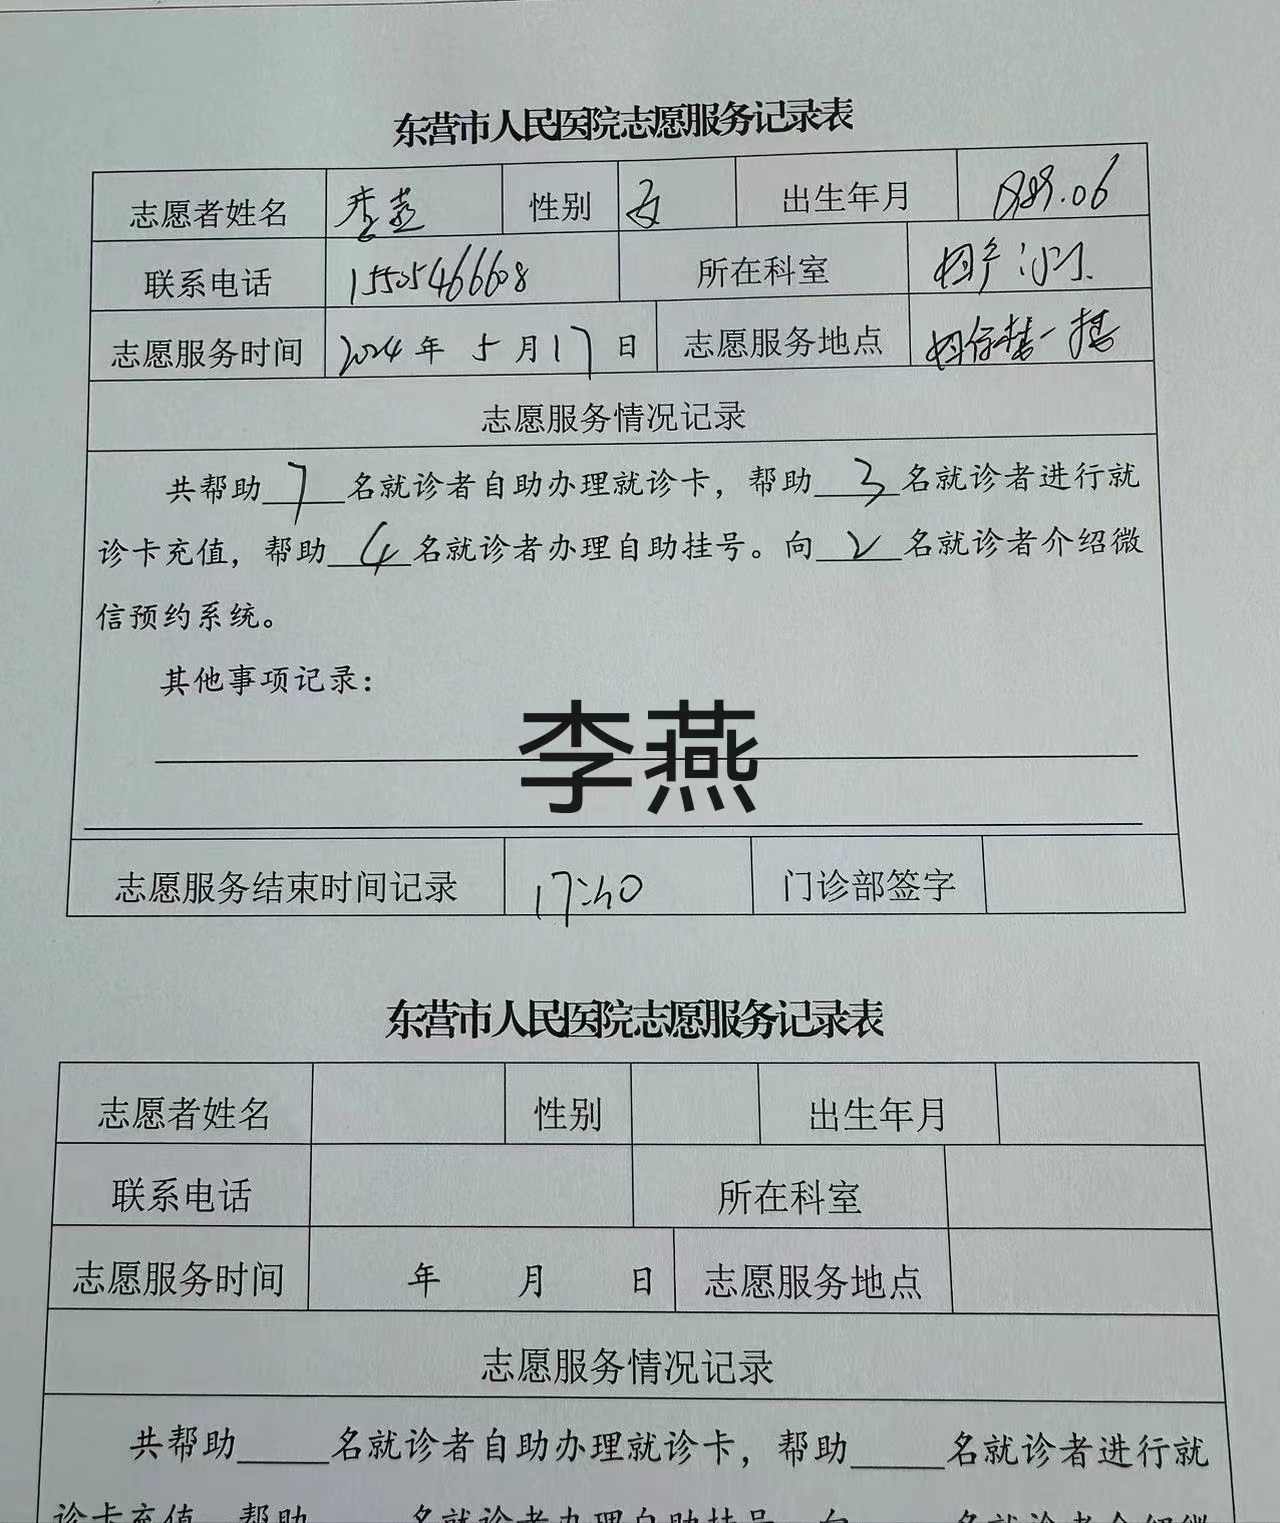 东营市人民医院志愿服务记录表
志愿者姓名 李燕 性别 女 出生年月 1989.06
联系电话 15505466608 所在科室 妇产门
志愿服务时间 2024年 5月17日 志愿服务地点 妇保楼一楼
志愿服务情况记录
共帮助7名就诊者自助办理就诊卡，帮助3名就诊者进行就
诊卡充值，帮助4名就诊者办理自助挂号。向2名就诊者介绍微
信预约系统。
其他事项记录：
李燕
志愿服务结束时间记录 17:40 门诊部签字
东营市人民医院志愿服务记录表
志愿者姓名 性别 出生年月
联系电话 所在科室
志愿服务时间 年 月 日 志愿服务地点
志愿服务情况记录
共帮助_____名就诊者自助办理就诊卡，帮助_____名就诊者进行就
诊卡充值，帮助_____名就诊者办理自助挂号。向_____名就诊者介绍微